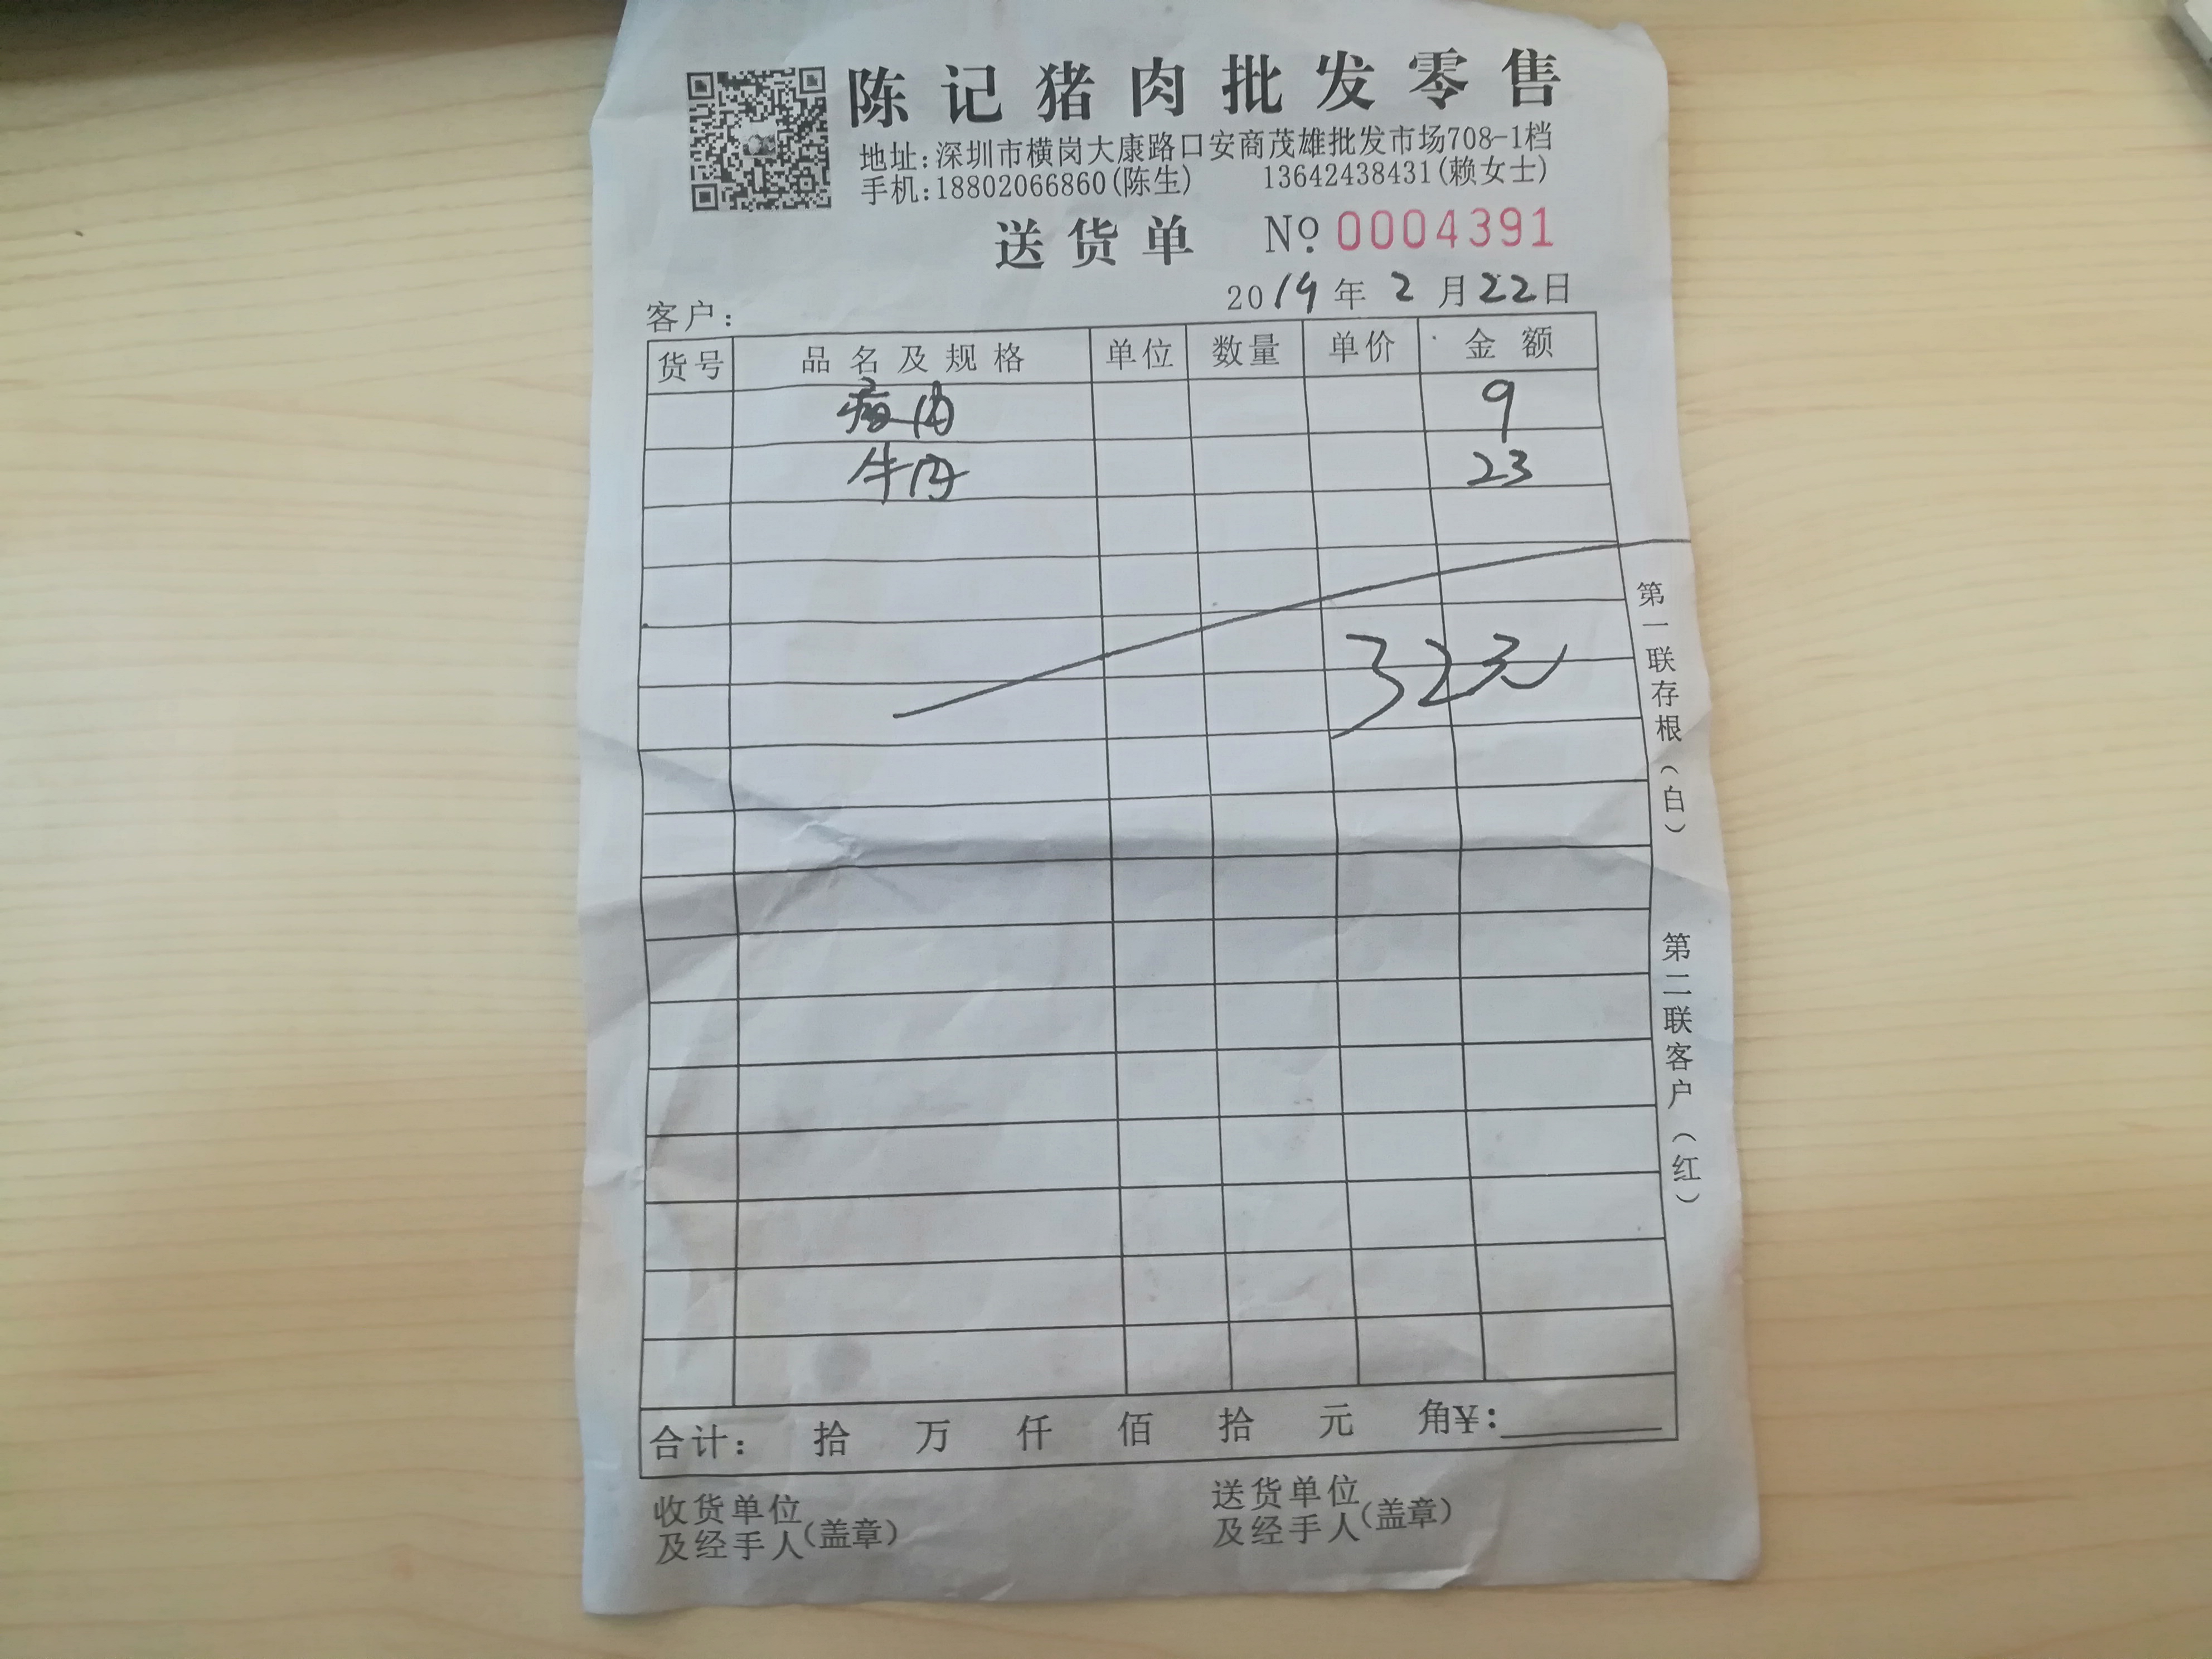 陈记猪肉批发零售
地址:深圳市横岗大康路口安商茂雄批发市场708-1档
手机:18802066860(陈生) 13642438431(赖女士)
送货单 Nº 0004391
2019年2月22日
客户:
货号 品名及规格 单位 数量 单价 金额
瘦肉 9
牛肉 23
32元
第一联存根(白)
第二联客户(红)
合计: 拾 万 仟 佰 拾 元 角¥:
收货单位及经手人(盖章)
送货单位及经手人(盖章)